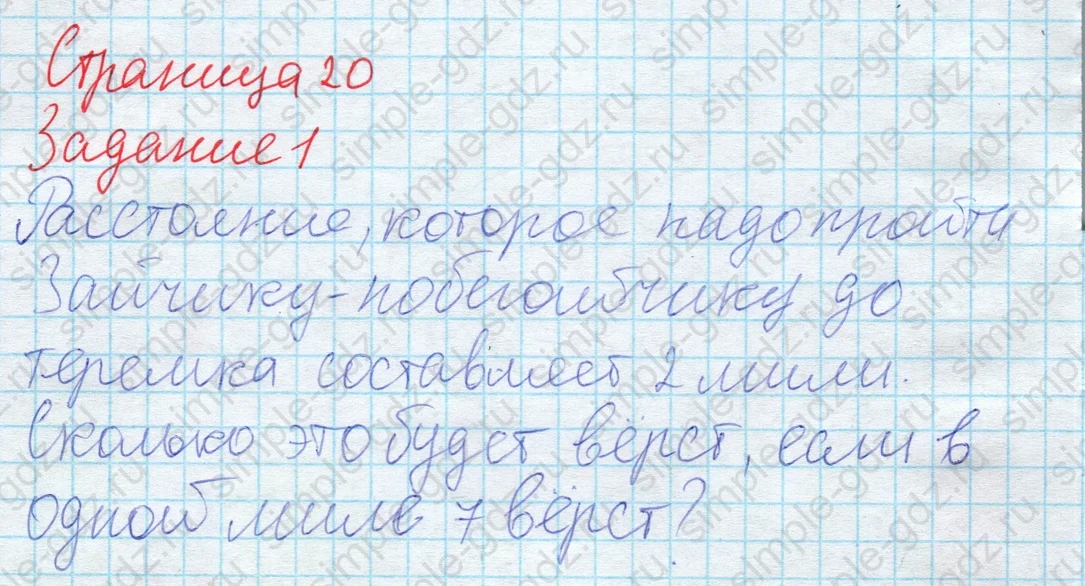 Страница 20
Задание 1
Расстояние, которое надо пройти
Зайчику-побегайчику до
теремка составляет 2 мили.
Сколько это будет вёрст, если в
одной миле 7 вёрст?